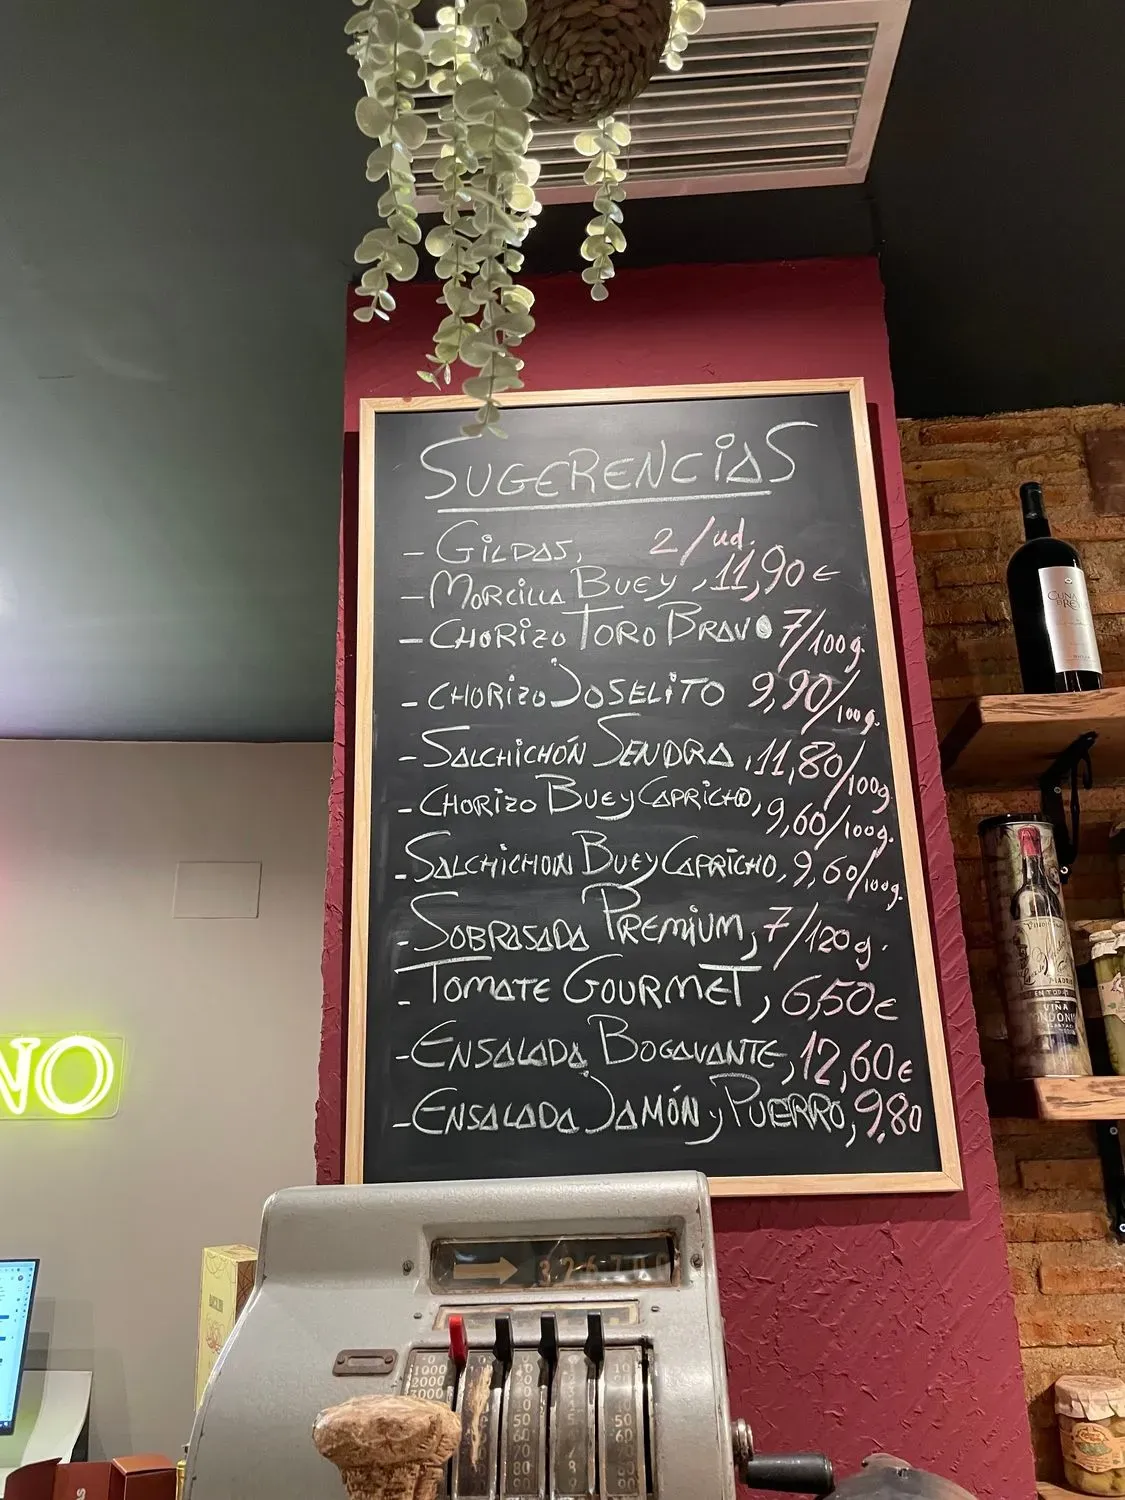 SUGERENCIAS
- GILDAS, 2/ud.
- MORCILLA BUEY, 11,90€
- CHORIZO TORO BRAVO 7/100g.
- CHORIZO JOSELITO 9,90/100g.
- SALCHICHÓN SENDRA, 11,80/100g.
- CHORIZO BUEY CAPRICHO, 9,60/100g.
- SALCHICHON BUEY CAPRICHO, 9,60/100g.
- SOBRASADA PREMIUM, 7/120g.
- TOMATE GOURMET, 6,50€
- ENSALADA BOGAVANTE, 12,60€
- ENSALADA JAMÓN y PUERRO, 9,80
CUNA
DE REY
NO
MADRID
VIÑA
1000
2000
3000
50
60
70
80
90